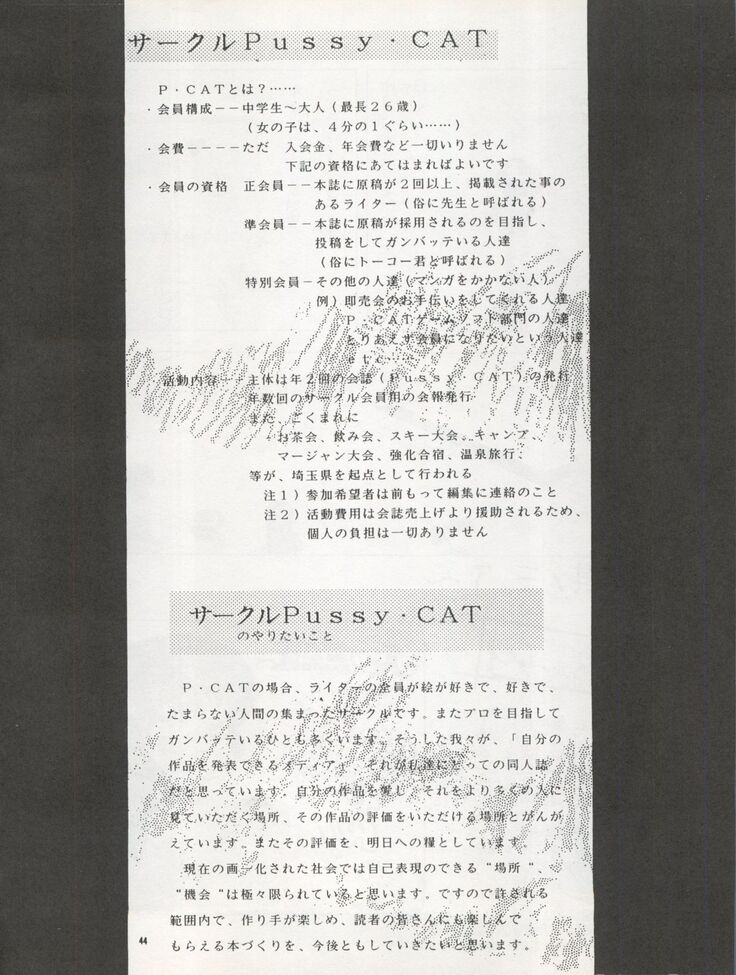 サークルPussy・CAT
P・CATとは?……
・会員構成――中学生~大人(最長26歳)
(女の子は、4分の1ぐらい……)
・会費――――ただ 入会金、年会費など一切いりません
下記の資格にあてはまればよいです
・会員の資格 正会員――本誌に原稿が2回以上、掲載された事の
あるライター(俗に先生と呼ばれる)
準会員――本誌に原稿が採用されるのを目指し、
投稿をしてガンバッテいる人達
(俗にトーコー君と呼ばれる)
特別会員―その他の人達(マンガをかかない人)
例)即売会のお手伝いをしてくれる人達
P・CATゲームソフト部門の人達
とりあえず会員になりたいという人達
etc……
・活動内容――主体は年2回の会誌(Pussy・CAT)の発行
年数回のサークル会員用の会報発行
また、ごくまれに
お茶会、飲み会、スキー大会、キャンプ、
マージャン大会、強化合宿、温泉旅行、
等が、埼玉県を起点として行われる
注1)参加希望者は前もって編集に連絡のこと
注2)活動費用は会誌売上げより援助されるため、
個人の負担は一切ありません
サークルPussy・CAT
のやりたいこと
P・CATの場合、ライターの全員が絵が好きで、好きで、
たまらない人間の集まったサークルです。またプロを目指して
ガンバッテいるひとも多くいます。そうした我々が、「自分の
作品を発表できるメディア」 それが私達にとっての同人誌
だと思っています。自分の作品を愛し、それをより多くの人に
見ていただく場所、その作品の評価をいただける場所とがんが
えています。またその評価を、明日への糧としています。
現在の画一化された社会では自己表現のできる“場所“
“機会“は極々限られていると思います。ですので許される
範囲内で、作り手が楽しめ、読者の皆さんにも楽しんで
もらえる本づくりを、今後ともしていきたいと思います。
44